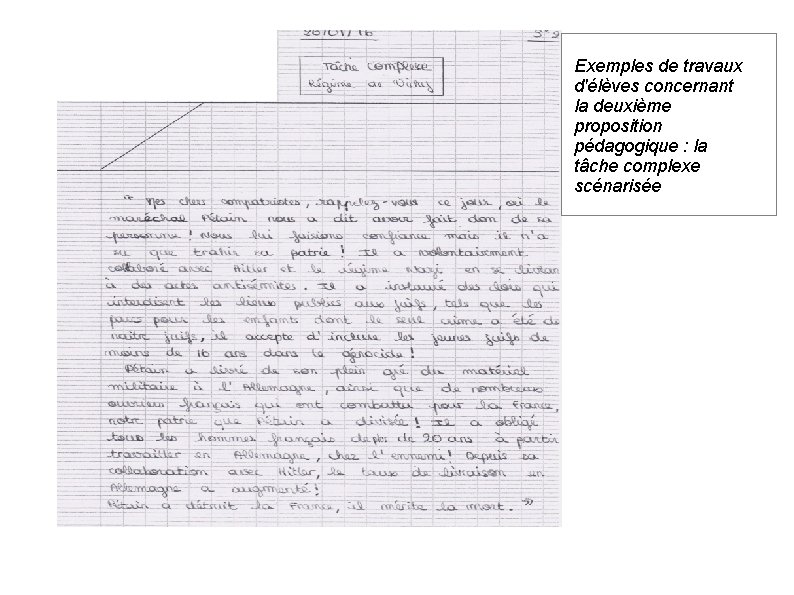 20/01/16
3°2
Tâche Complexe
Régime de Vichy
" Mes chers compatriotes, rappelez-vous ce jour, où le
maréchal Pétain nous a dit avoir fait don de sa
personne ! Nous lui faisions confiance mais il n'a
su que trahir sa patrie ! Il a volontairement
collaboré avec Hitler et le régime Nazi en se livran
à des actes antisémites. Il a instauré des lois qui
interdisent les lieux publics aux juifs, tels que les
parcs pour les enfants dont le seul crime a été de
naître juifs, il accepte d'inclure les jeunes juifs de
moins de 16 ans dans le génocide !
Pétain a livré de son plein gré du matériel
militaire à l'Allemagne, ainsi que de nombreux
ouvriers français qui ont combattu pour la France,
notre patrie que Pétain a divisée ! Il a obligé
tous les hommes français de 20 ans à partir
travailler en Allemagne, chez l'ennemi ! Depuis sa
collaboration avec Hitler, le taux de livraison en
Allemagne a augmenté !
Pétain a détruit la France, il mérite la mort. "
Exemples de travaux
d'élèves concernant
la deuxième
proposition
pédagogique : la
tâche complexe
scénarisée